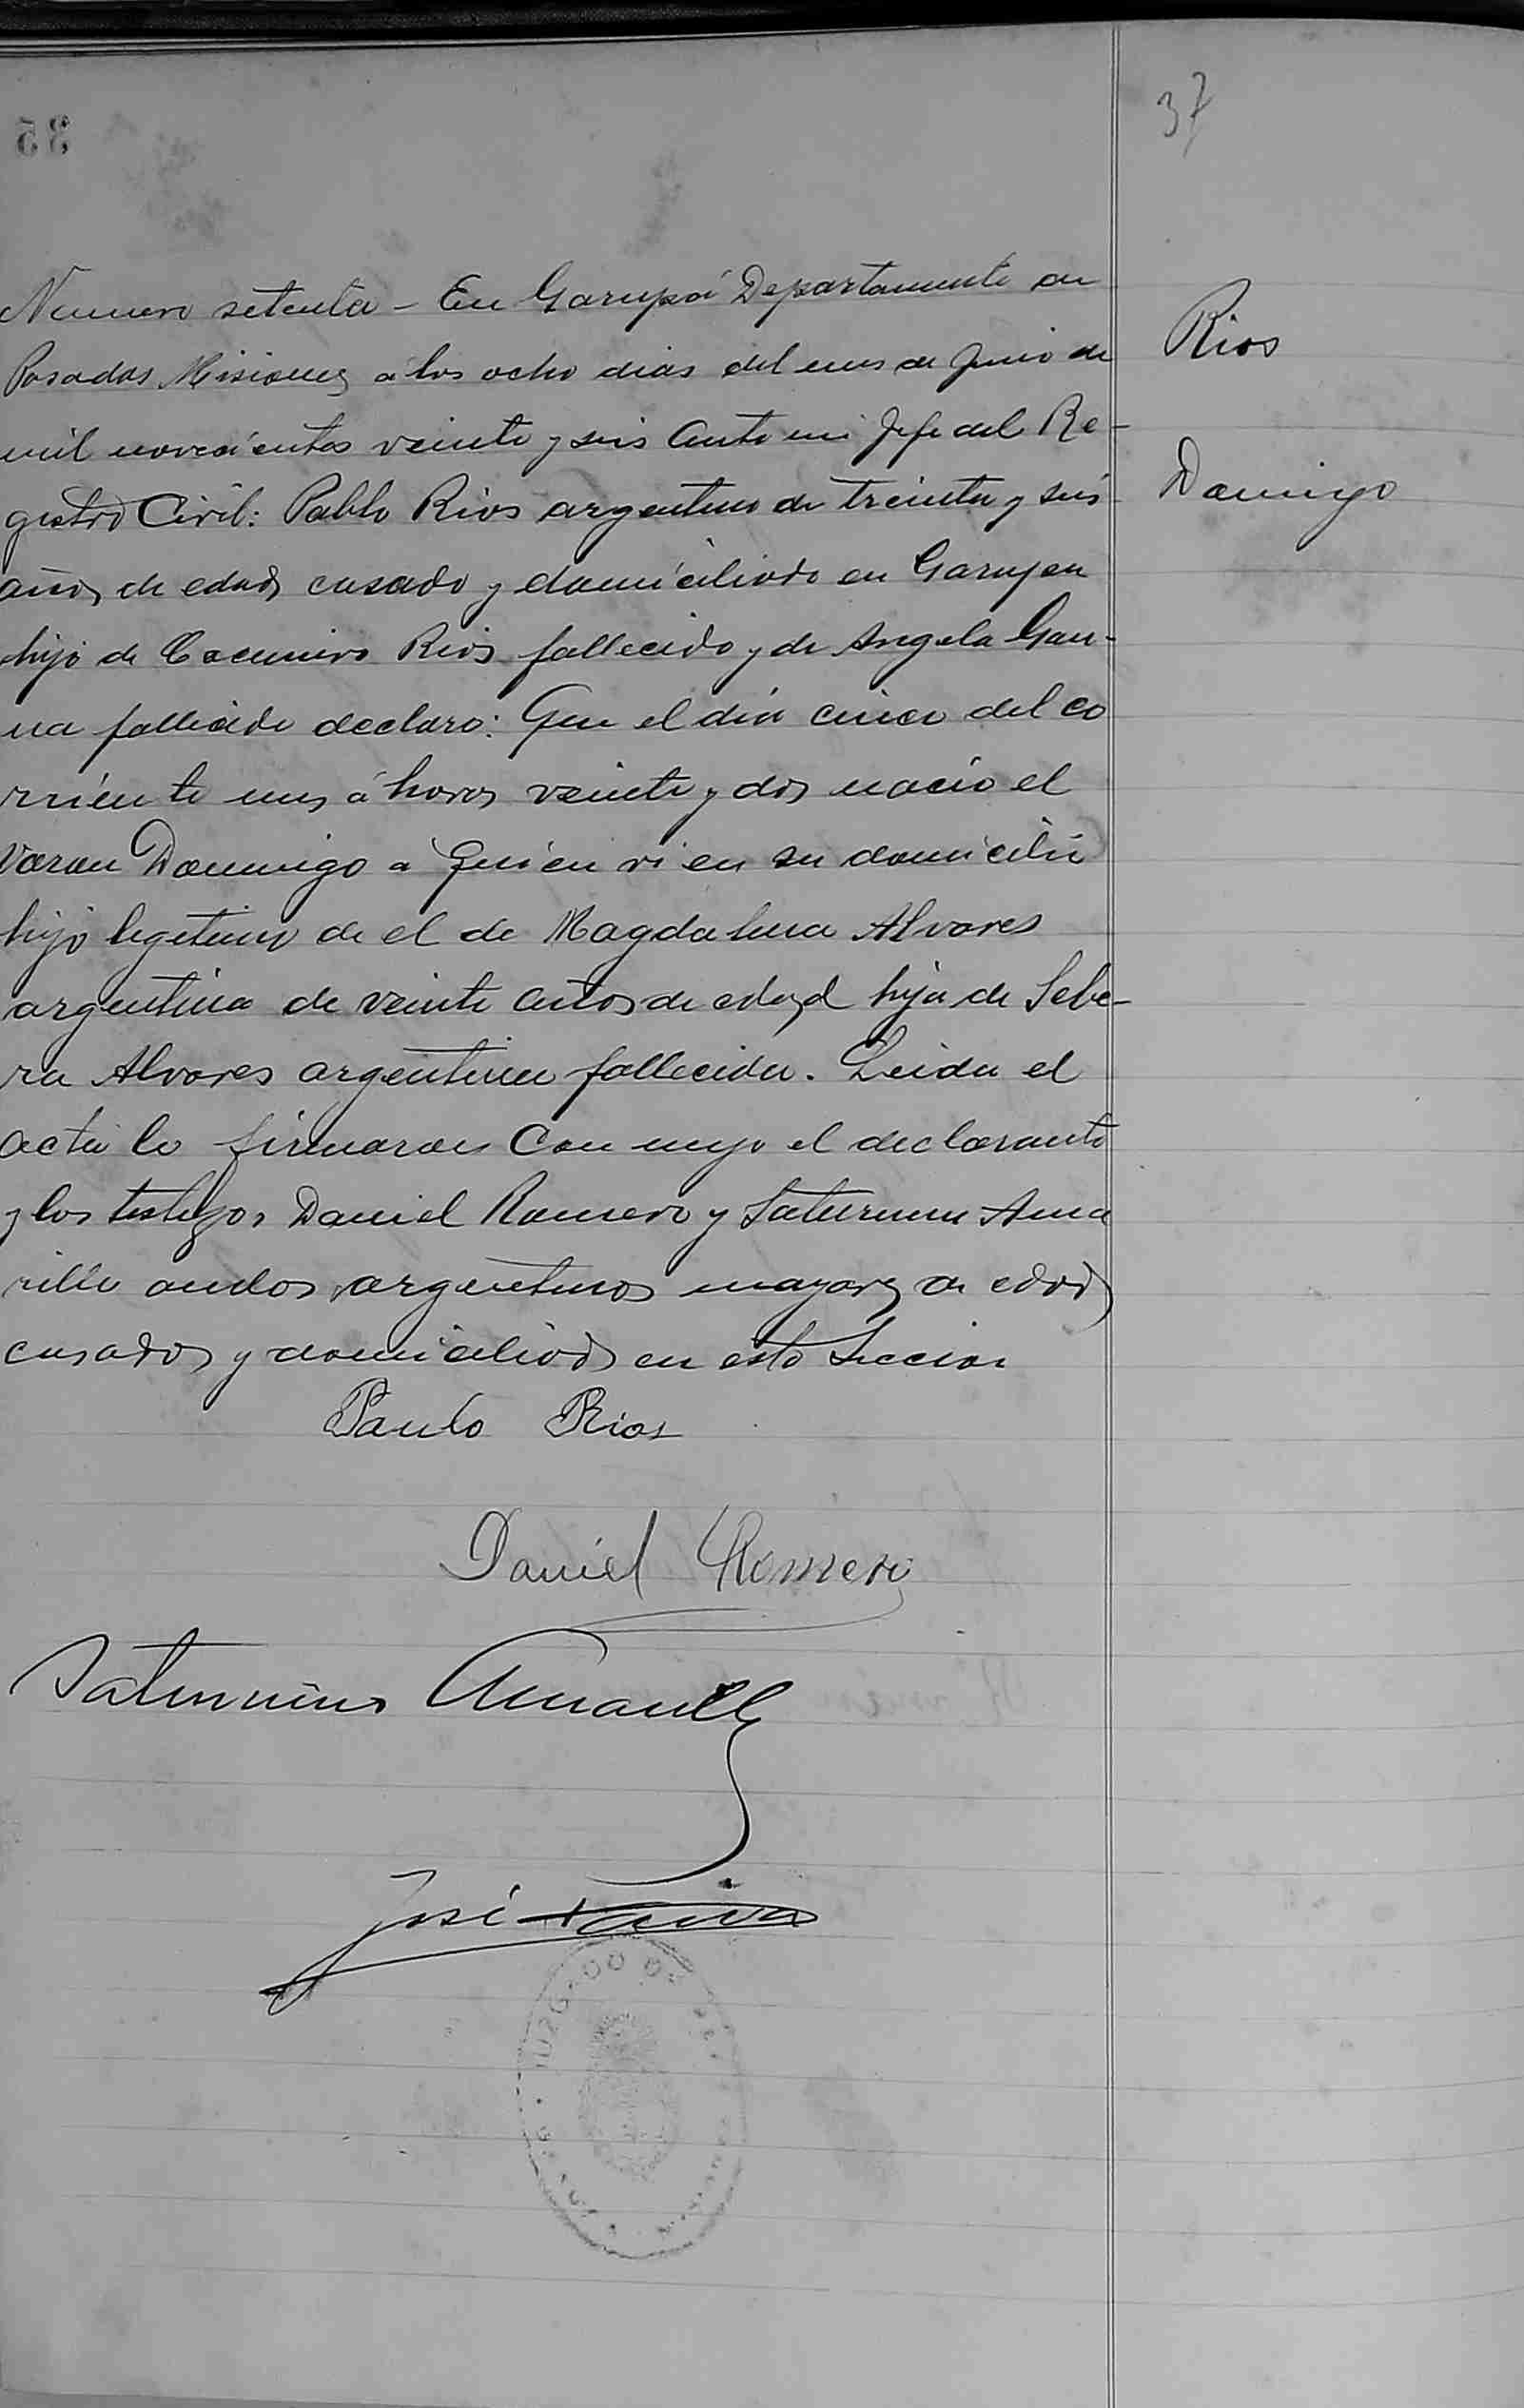 37
Numero setenta - En Garupá Departamento de
Rios
Posadas Misiones a los ocho dias del mes de Junio de
mil novecientos veinte y seis Ante mi Jefe del Re-
Domingo
gistro Civil: Pablo Rios argentino de treinta y seis
años de edad casado y domiciliado en Garupa
hijo de Rios fallecido y de Angela Gau-
na fallecida declaro: Que el dia cinco del co
rriente mes á horas veinte y dos nacio el
varon Domingo a quien vi en su domicilio
hijo legitimo de el de Magdalena Alvares
argentina de veinte años de edad hija de Sebe-
ra Alvares argentina fallecida. Leida el
acta la firmaron conmigo el declarante
y los testigos Daniel Romero y Saturnino Ama
rilla ambos argentinos mayores de edad
casados y domiciliados en esta Seccion
Paulo Rios
Daniel Romero
Saturnino Amarilla
José
JUZGADO DE